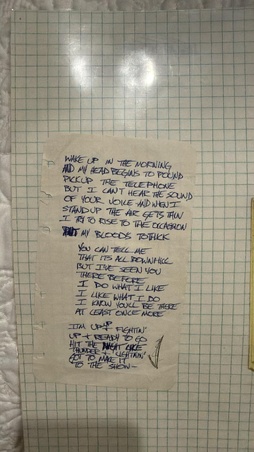 WAKE UP IN THE MORNING
AND MY HEAD BEGINS TO POUND
PICK UP THE TELEPHONE
BUT I CAN'T HEAR THE SOUND
OF YOUR VOICE AND WHEN I
STAND UP THE AIR GETS THIN
I TRY TO RISE TO THE OCCASION
BUT MY BLOODS TO THICK
YOU CAN TELL ME
THAT ITS ALL DOWNHILL
BUT I'VE SEEN YOU
THERE BEFORE
I DO WHAT I LIKE
I LIKE WHAT I DO
I KNOW YOU'LL BE THERE
AT LEAST ONCE MORE
I'M UP + FIGHTIN'
UP + READY TO GO
HIT THE LIKE
THUNDER + LIGHTNIN'
GOT TO MAKE IT
TO THE SHOW-